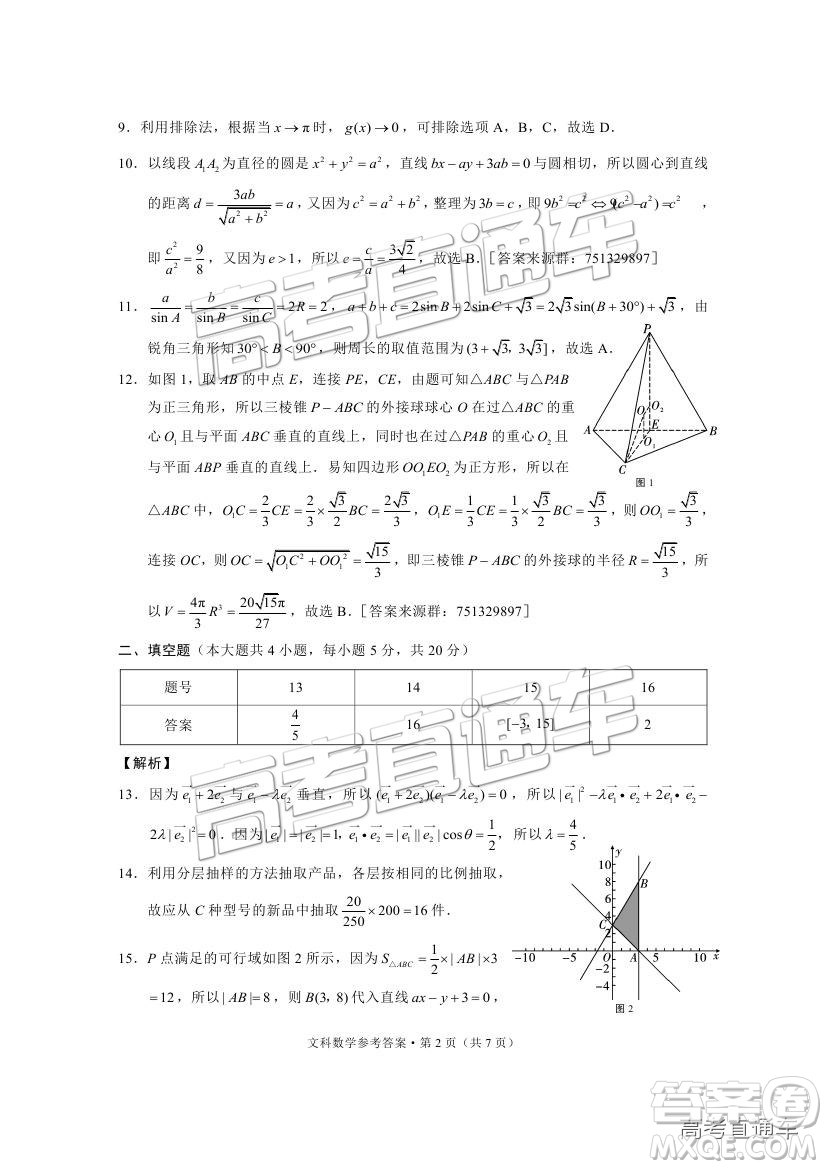 9．利用排除法，根据当 x→π 时，g(x)→0，可排除选项 A，B，C，故选 D．
10．以线段 A₁A₂ 为直径的圆是 x²+y²=a²，直线 bx−ay+3ab=0 与圆相切，所以圆心到直线
的距离 d=3ab/√(a²+b²)=a，又因为 c²=a²+b²，整理为 3b=c，即 9b²=c²⇔9(c²−a²)=c²，
即 c²/a²=9/8，又因为 e>1，所以 e=c/a=3√2/4，故选 B．［答案来源群：751329897］
11．a/sin A=b/sin B=c/sin C=2R=2，a+b+c=2sin B+2sin C+√3=2√3sin(B+30°)+√3，由
锐角三角形知 30°<B<90°，则周长的取值范围为 (3+√3，3√3]，故选 A．
12．如图 1，取 AB 的中点 E，连接 PE，CE，由题可知△ABC 与△PAB
为正三角形，所以三棱锥 P−ABC 的外接球球心 O 在过△ABC 的重
心 O₁ 且与平面 ABC 垂直的直线上，同时也在过△PAB 的重心 O₂ 且
与平面 ABP 垂直的直线上．易知四边形 OO₁EO₂ 为正方形，所以在
△ABC 中，O₁C=2/3CE=2/3×√3/2BC=2√3/3，O₁E=1/3CE=1/3×√3/2BC=√3/3，则 OO₁=√3/3，
连接 OC，则 OC=√(O₁C²+OO₁²)=√15/3，即三棱锥 P−ABC 的外接球的半径 R=√15/3，所
以 V=4π/3R³=20√15π/27，故选 B．［答案来源群：751329897］
P
A
B
C
O
O₂
E
O₁
图 1
二、填空题（本大题共 4 小题，每小题 5 分，共 20 分）
题号 13 14 15 16
答案 4/5 16 [−3，15] 2
【解析】
13．因为 e₁+2e₂ 与 e₁−λe₂ 垂直，所以 (e₁+2e₂)(e₁−λe₂)=0，所以 |e₁|²−λe₁•e₂+2e₁•e₂−
2λ|e₂|²=0．因为 |e₁|=|e₂|=1，e₁•e₂=|e₁||e₂|cosθ=1/2，所以 λ=4/5．
14．利用分层抽样的方法抽取产品，各层按相同的比例抽取，
故应从 C 种型号的新品中抽取 20/250×200=16 件．
15．P 点满足的可行域如图 2 所示，因为 S△ABC=1/2×|AB|×3
=12，所以 |AB|=8，则 B(3，8) 代入直线 ax−y+3=0，
y
10
8
B
6
4
C
2
−10 −5 O A 5 10 x
−2
−4
图 2
文科数学参考答案·第 2 页（共 7 页）
高考直通车
高考直通车
答案卷
高考直通车
MXQE.COM